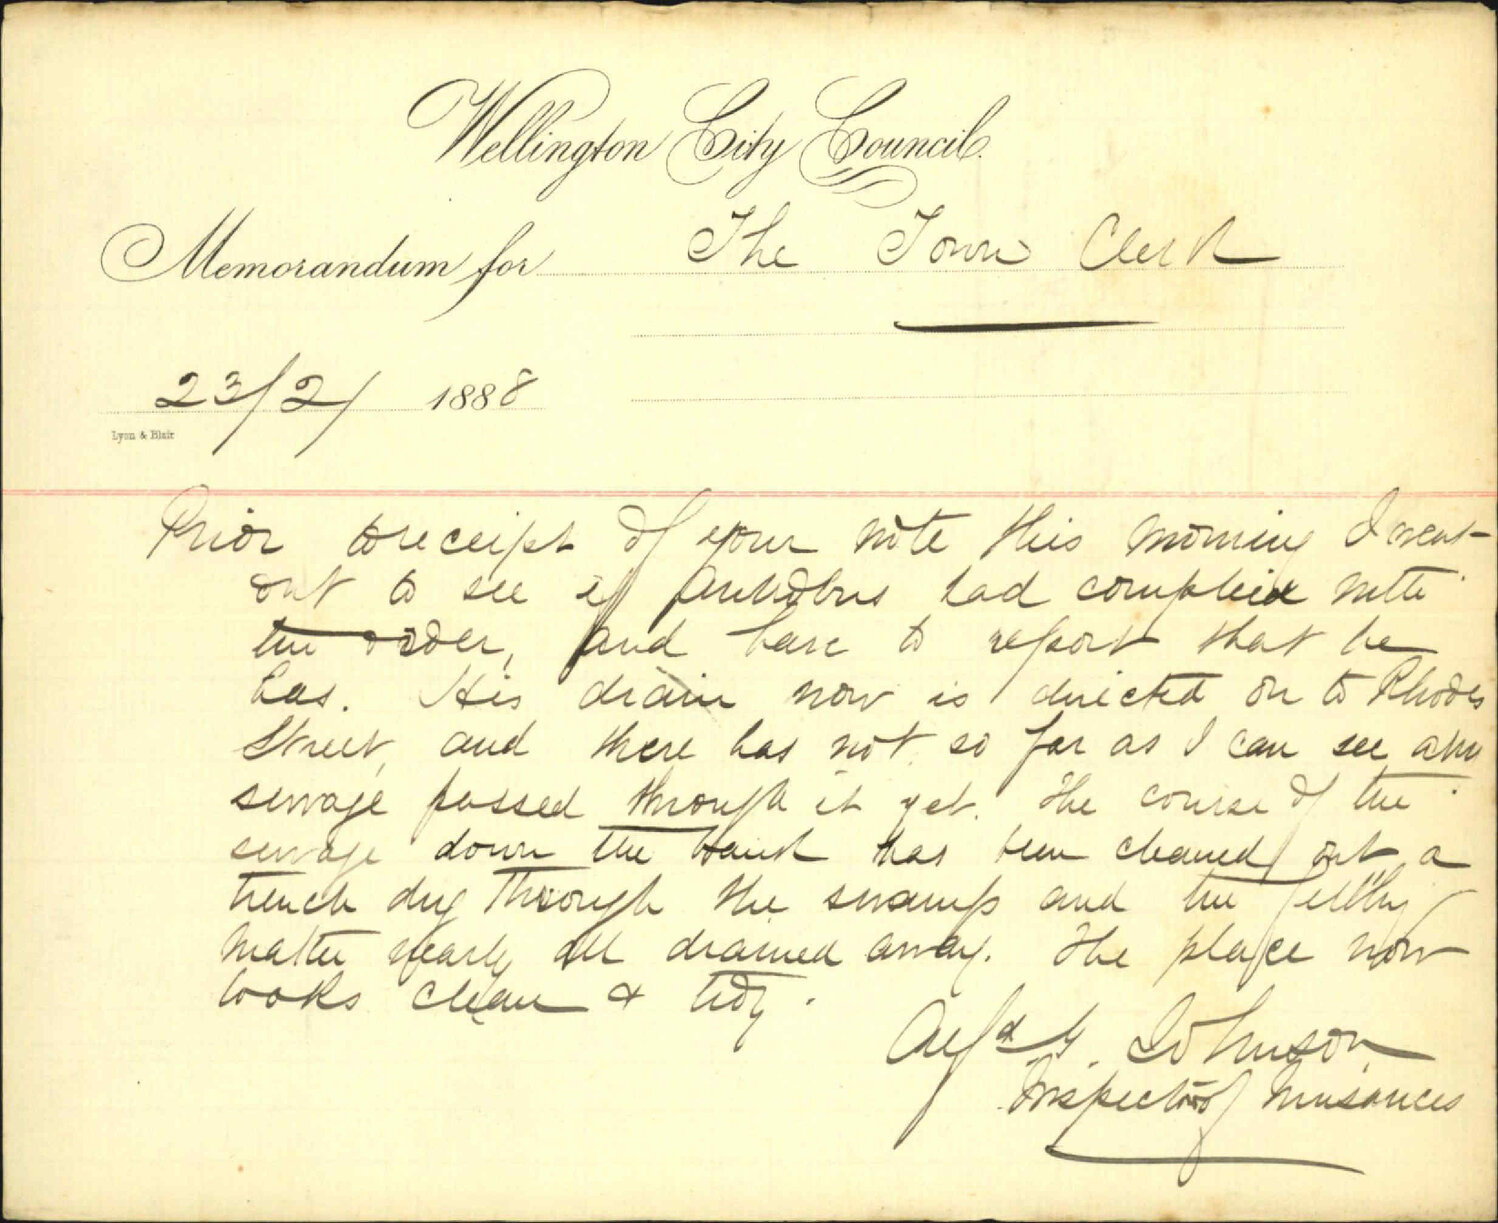 Wellington City Council.
Memorandum for The Town Clerk
23/2/ 1888
Lyon & Blair
Prior to receipt of your note this morning I went
out to see if Antrobus had complied with
the order, and have to report that he
has. His drain now is directed on to Rhodes
Street, and there has not so far as I can see any
sewage passed through it yet. The course of the
sewage down the bank has been cleaned out a
trench dug through the swamp and the filthy
matter nearly all drained away. The place now
looks clean & tidy.
Alfd G. Johnson
Inspector of Nuisances